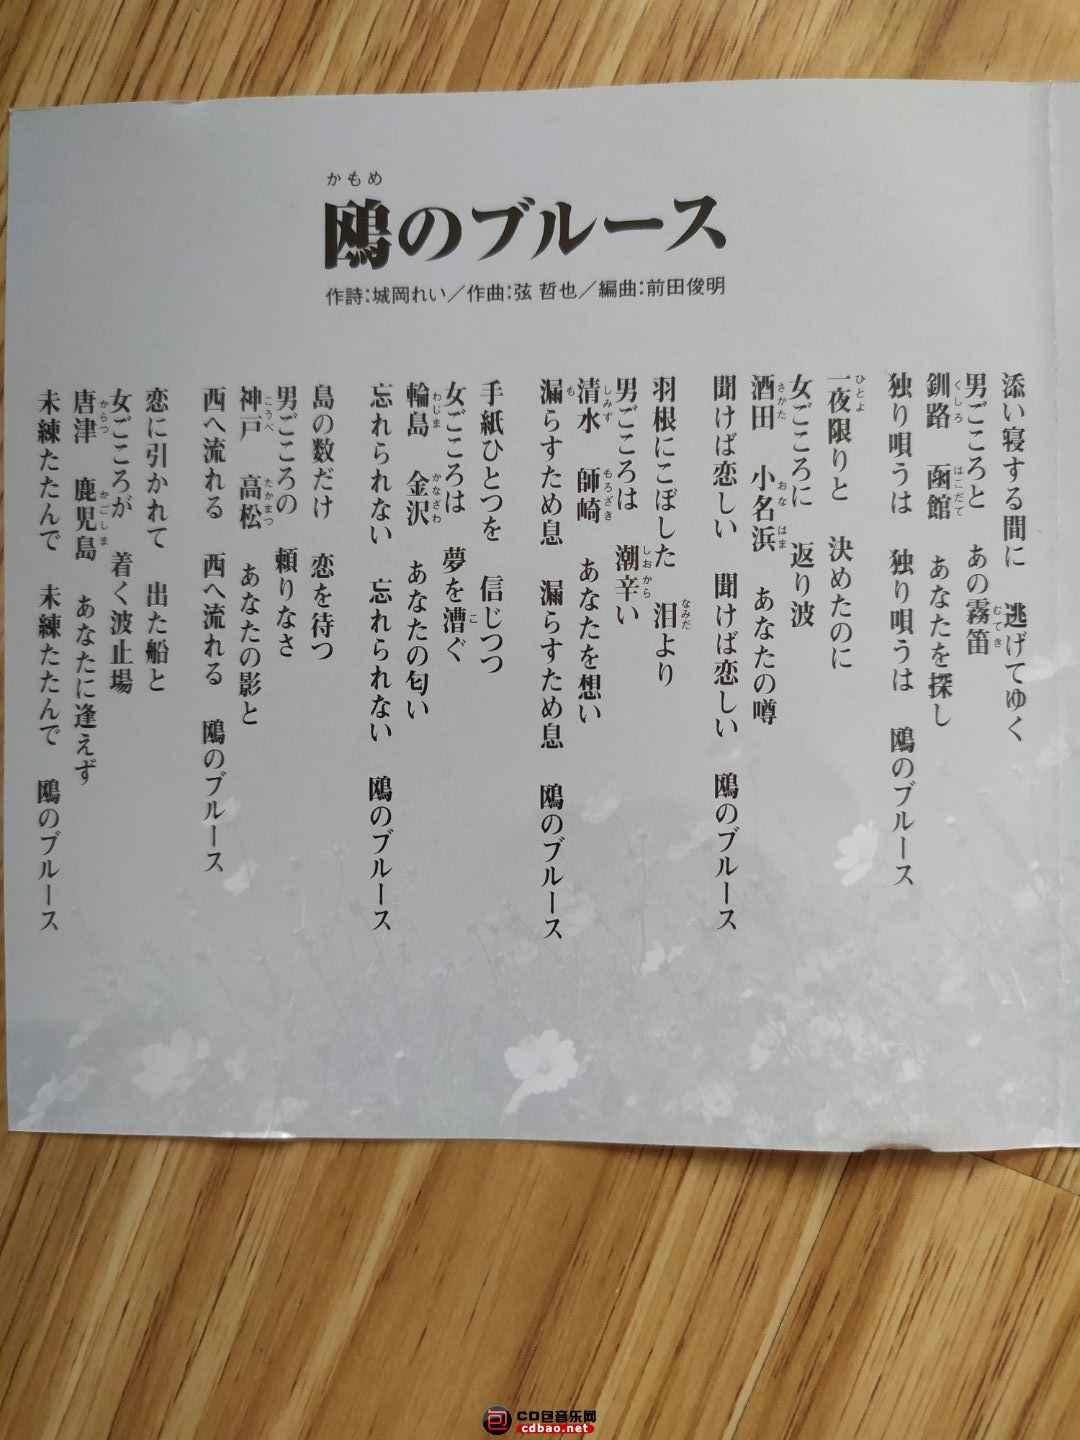 かもめ
鴎のブルース
作詩:城岡れい／作曲:弦 哲也／編曲:前田俊明
添い寝する間に 逃げてゆく
男ごころと あの霧笛
むてき
釧路 函館 あなたを探し
くしろ はこだて
独り唄うは 独り唄うは 鴎のブルース
一夜限りと 決めたのに
ひとよ
女ごころに 返り波
酒田 小名浜 あなたの噂
さかた おなはま
聞けば恋しい 聞けば恋しい 鴎のブルース
羽根にこぼした 泪より
なみだ
男ごころは 潮辛い
しおから
清水 師崎 あなたを想い
しみず もろざき
漏らすため息 漏らすため息 鴎のブルース
も
手紙ひとつを 信じつつ
女ごころは 夢を漕ぐ
こ
輪島 金沢 あなたの匂い
わじま かなざわ
忘れられない 忘れられない 鴎のブルース
島の数だけ 恋を待つ
男ごころの 頼りなさ
神戸 高松 あなたの影と
こうべ たかまつ
西へ流れる 西へ流れる 鴎のブルース
恋に引かれて 出た船と
女ごころが 着く波止場
唐津 鹿児島 あなたに逢えず
からつ かごしま
未練たたんで 未練たたんで 鴎のブルース
CD包音乐网
cdbao.net